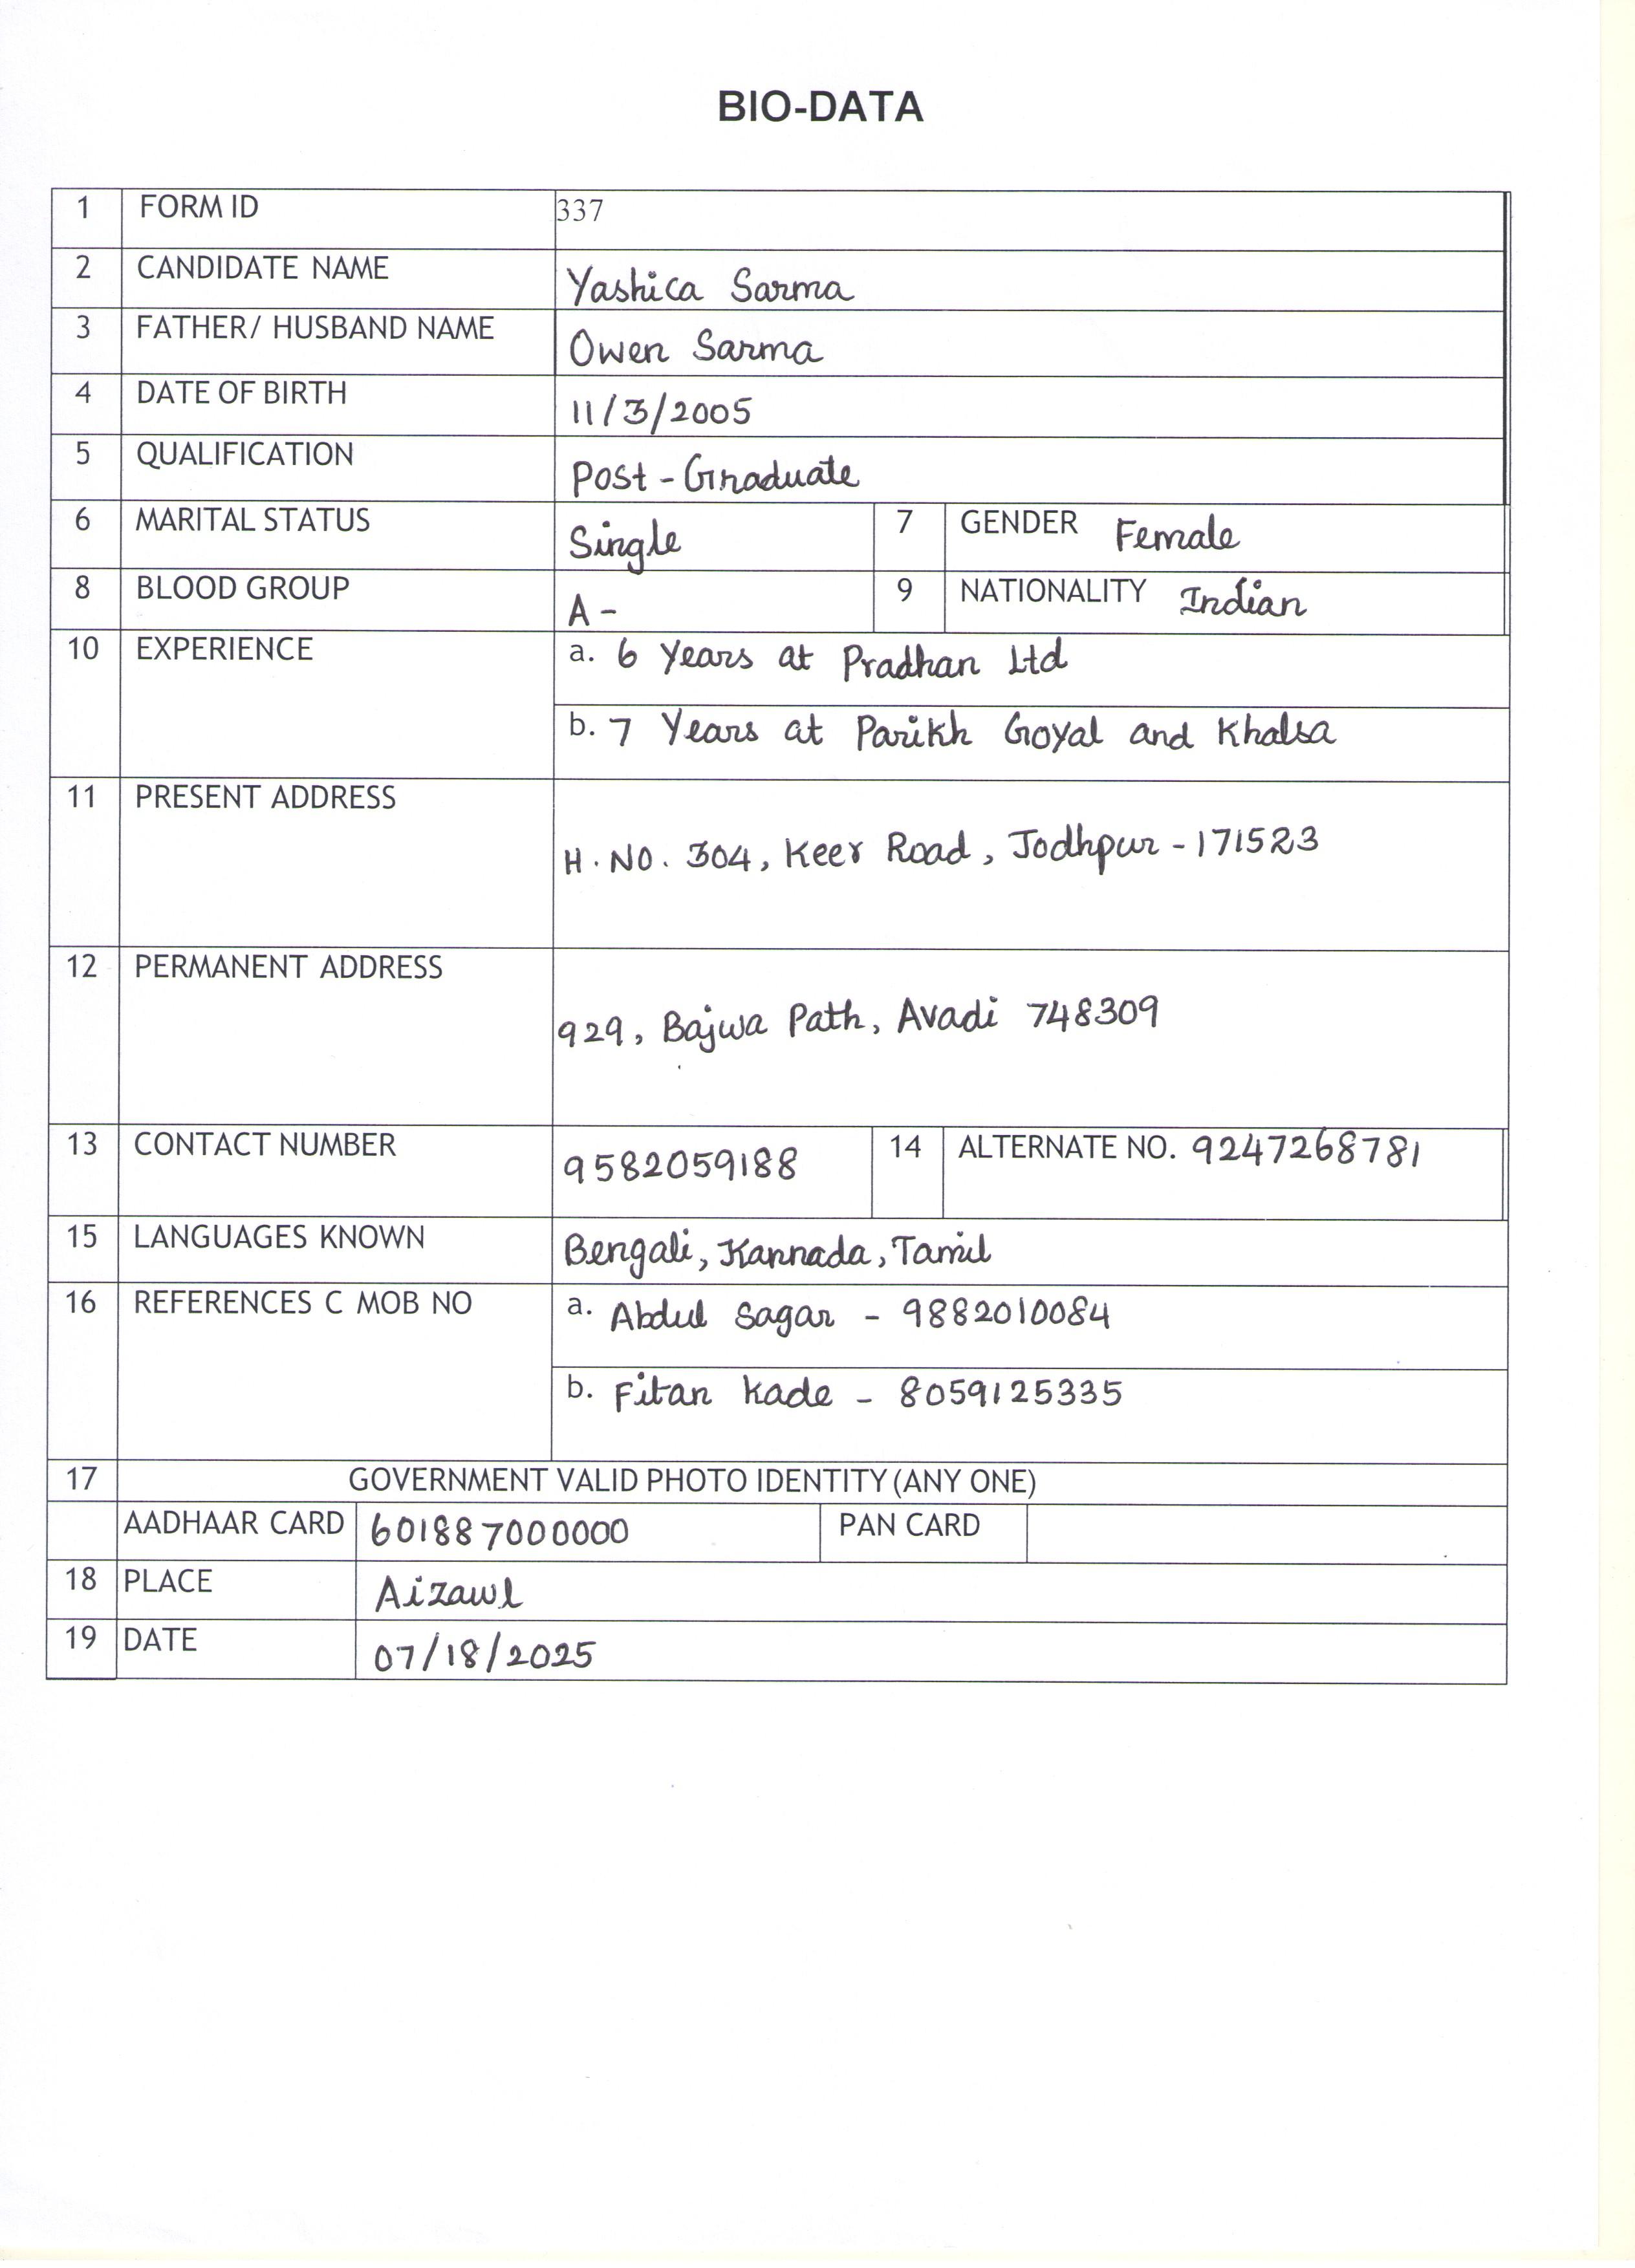 BIO-DATA
1 FORM ID 337
2 CANDIDATE NAME Yashica Sarma
3 FATHER/ HUSBAND NAME Owen Sarma
4 DATE OF BIRTH 11/3/2005
5 QUALIFICATION Post-Graduate
6 MARITAL STATUS Single 7 GENDER Female
8 BLOOD GROUP A- 9 NATIONALITY Indian
10 EXPERIENCE a. 6 Years at Pradhan Ltd
b. 7 Years at Parikh Goyal and Khalsa
11 PRESENT ADDRESS
H.NO. 304, Keer Road, Jodhpur - 171523
12 PERMANENT ADDRESS
929, Bajwa Path, Avadi 748309
13 CONTACT NUMBER 9582059188 14 ALTERNATE NO. 9247268781
15 LANGUAGES KNOWN Bengali, Kannada, Tamil
16 REFERENCES C MOB NO a. Abdul Sagar - 9882010084
b. Fitan Kade - 8059125335
17 GOVERNMENT VALID PHOTO IDENTITY (ANY ONE)
AADHAAR CARD 601887000000 PAN CARD
18 PLACE Aizawl
19 DATE 07/18/2025